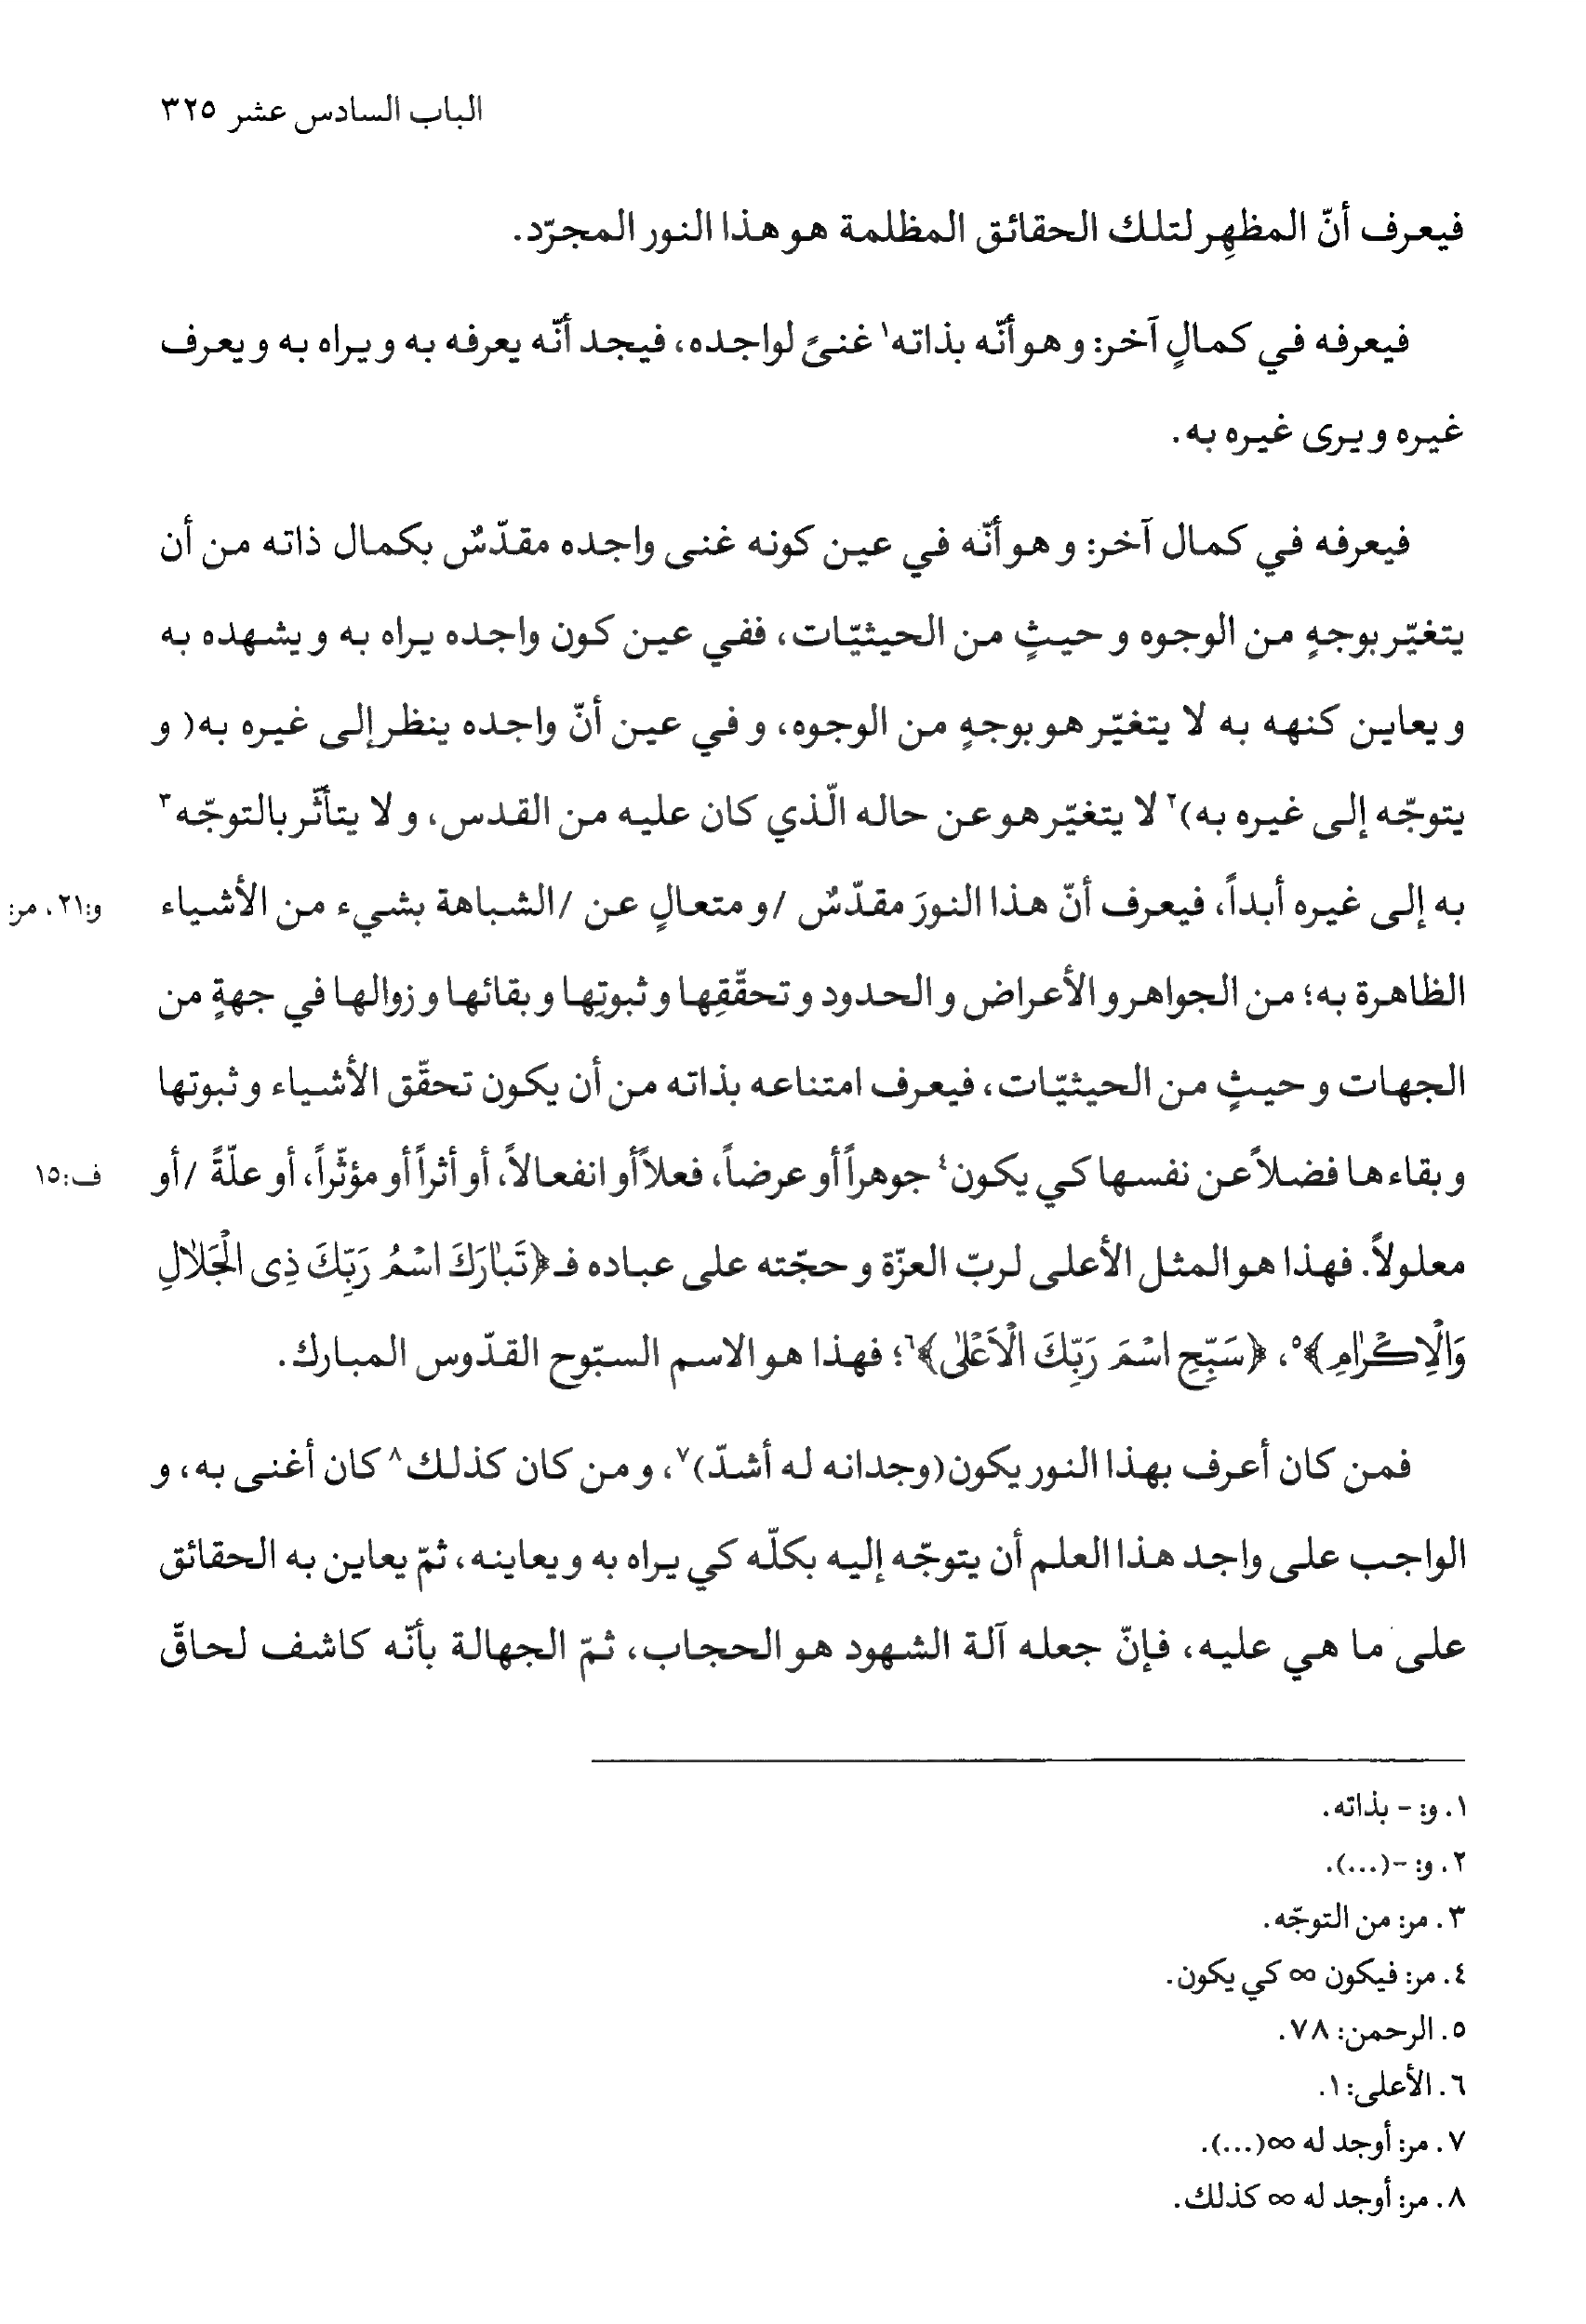 الباب السادس عشر ٣٢٥
فيعرف أنّ المظهِر لتلك الحقائق المظلمة هو هذا النور المجرّد.
فيعرفه في كمالٍ آخر: و هو أنّه بذاته١ غنىً لواجده، فيجد أنّه يعرفه به و يراه به و يعرف
غيره و يرى غيره به.
فيعرفه في كمال آخر: و هو أنّه في عين كونه غنى واجده مقدّسٌ بكمال ذاته من أن
يتغيّر بوجهٍ من الوجوه و حيثٍ من الحيثيّات، ففي عين كون واجده يراه به و يشهده به
و يعاين كنهه به لا يتغيّر هو بوجهٍ من الوجوه، و في عين أنّ واجده ينظر إلى غيره به( و
يتوجّه إلى غيره به)٢ لا يتغيّر هو عن حاله الّذي كان عليه من القدس، و لا يتأثّر بالتوجّه٣
به إلى غيره أبداً، فيعرف أنّ هذا النورَ مقدّسٌ /و متعالٍ عن /الشباهة بشيء من الأشياء و:٢١، مر:
الظاهرة به؛ من الجواهر و الأعراض و الحدود و تحقّقِها و ثبوتِها و بقائها و زوالها في جهةٍ من
الجهات و حيثٍ من الحيثيّات، فيعرف امتناعه بذاته من أن يكون تحقّق الأشياء و ثبوتها
و بقاءها فضلاً عن نفسها كي يكون٤ جوهراً أو عرضاً، فعلاً أو انفعالاً، أو أثراً أو مؤثّراً، أو علّةً /أو ف:١٥
معلولاً. فهذا هو المثل الأعلى لربّ العزّة و حجّته على عباده فـ﴿تَبٰارَكَ اسْمُ رَبِّكَ ذِى الْجَلاٰلِ
وَالْاِكْرٰامِ﴾٥، ﴿سَبِّحِ اسْمَ رَبِّكَ الْاَعْلٰى﴾٦؛ فهذا هو الاسم السبّوح القدّوس المبارك.
فمن كان أعرف بهذا النور يكون(وجدانه له أشدّ)٧، و من كان كذلك٨ كان أغنى به، و
الواجب على واجد هذا العلم أن يتوجّه إليه بكلّه كي يراه به و يعاينه، ثمّ يعاين به الحقائق
على ما هي عليه، فإنّ جعله آلة الشهود هو الحجاب، ثمّ الجهالة بأنّه كاشف لحاقّ
١. و: - بذاته.
٢. و: -(...).
٣. مر: من التوجّه.
٤. مر: فيكون ∞ كي يكون.
٥. الرحمن: ٧٨.
٦. الأعلى: ١.
٧. مر: أوجد له ∞(...).
٨. مر: أوجد له ∞ كذلك.